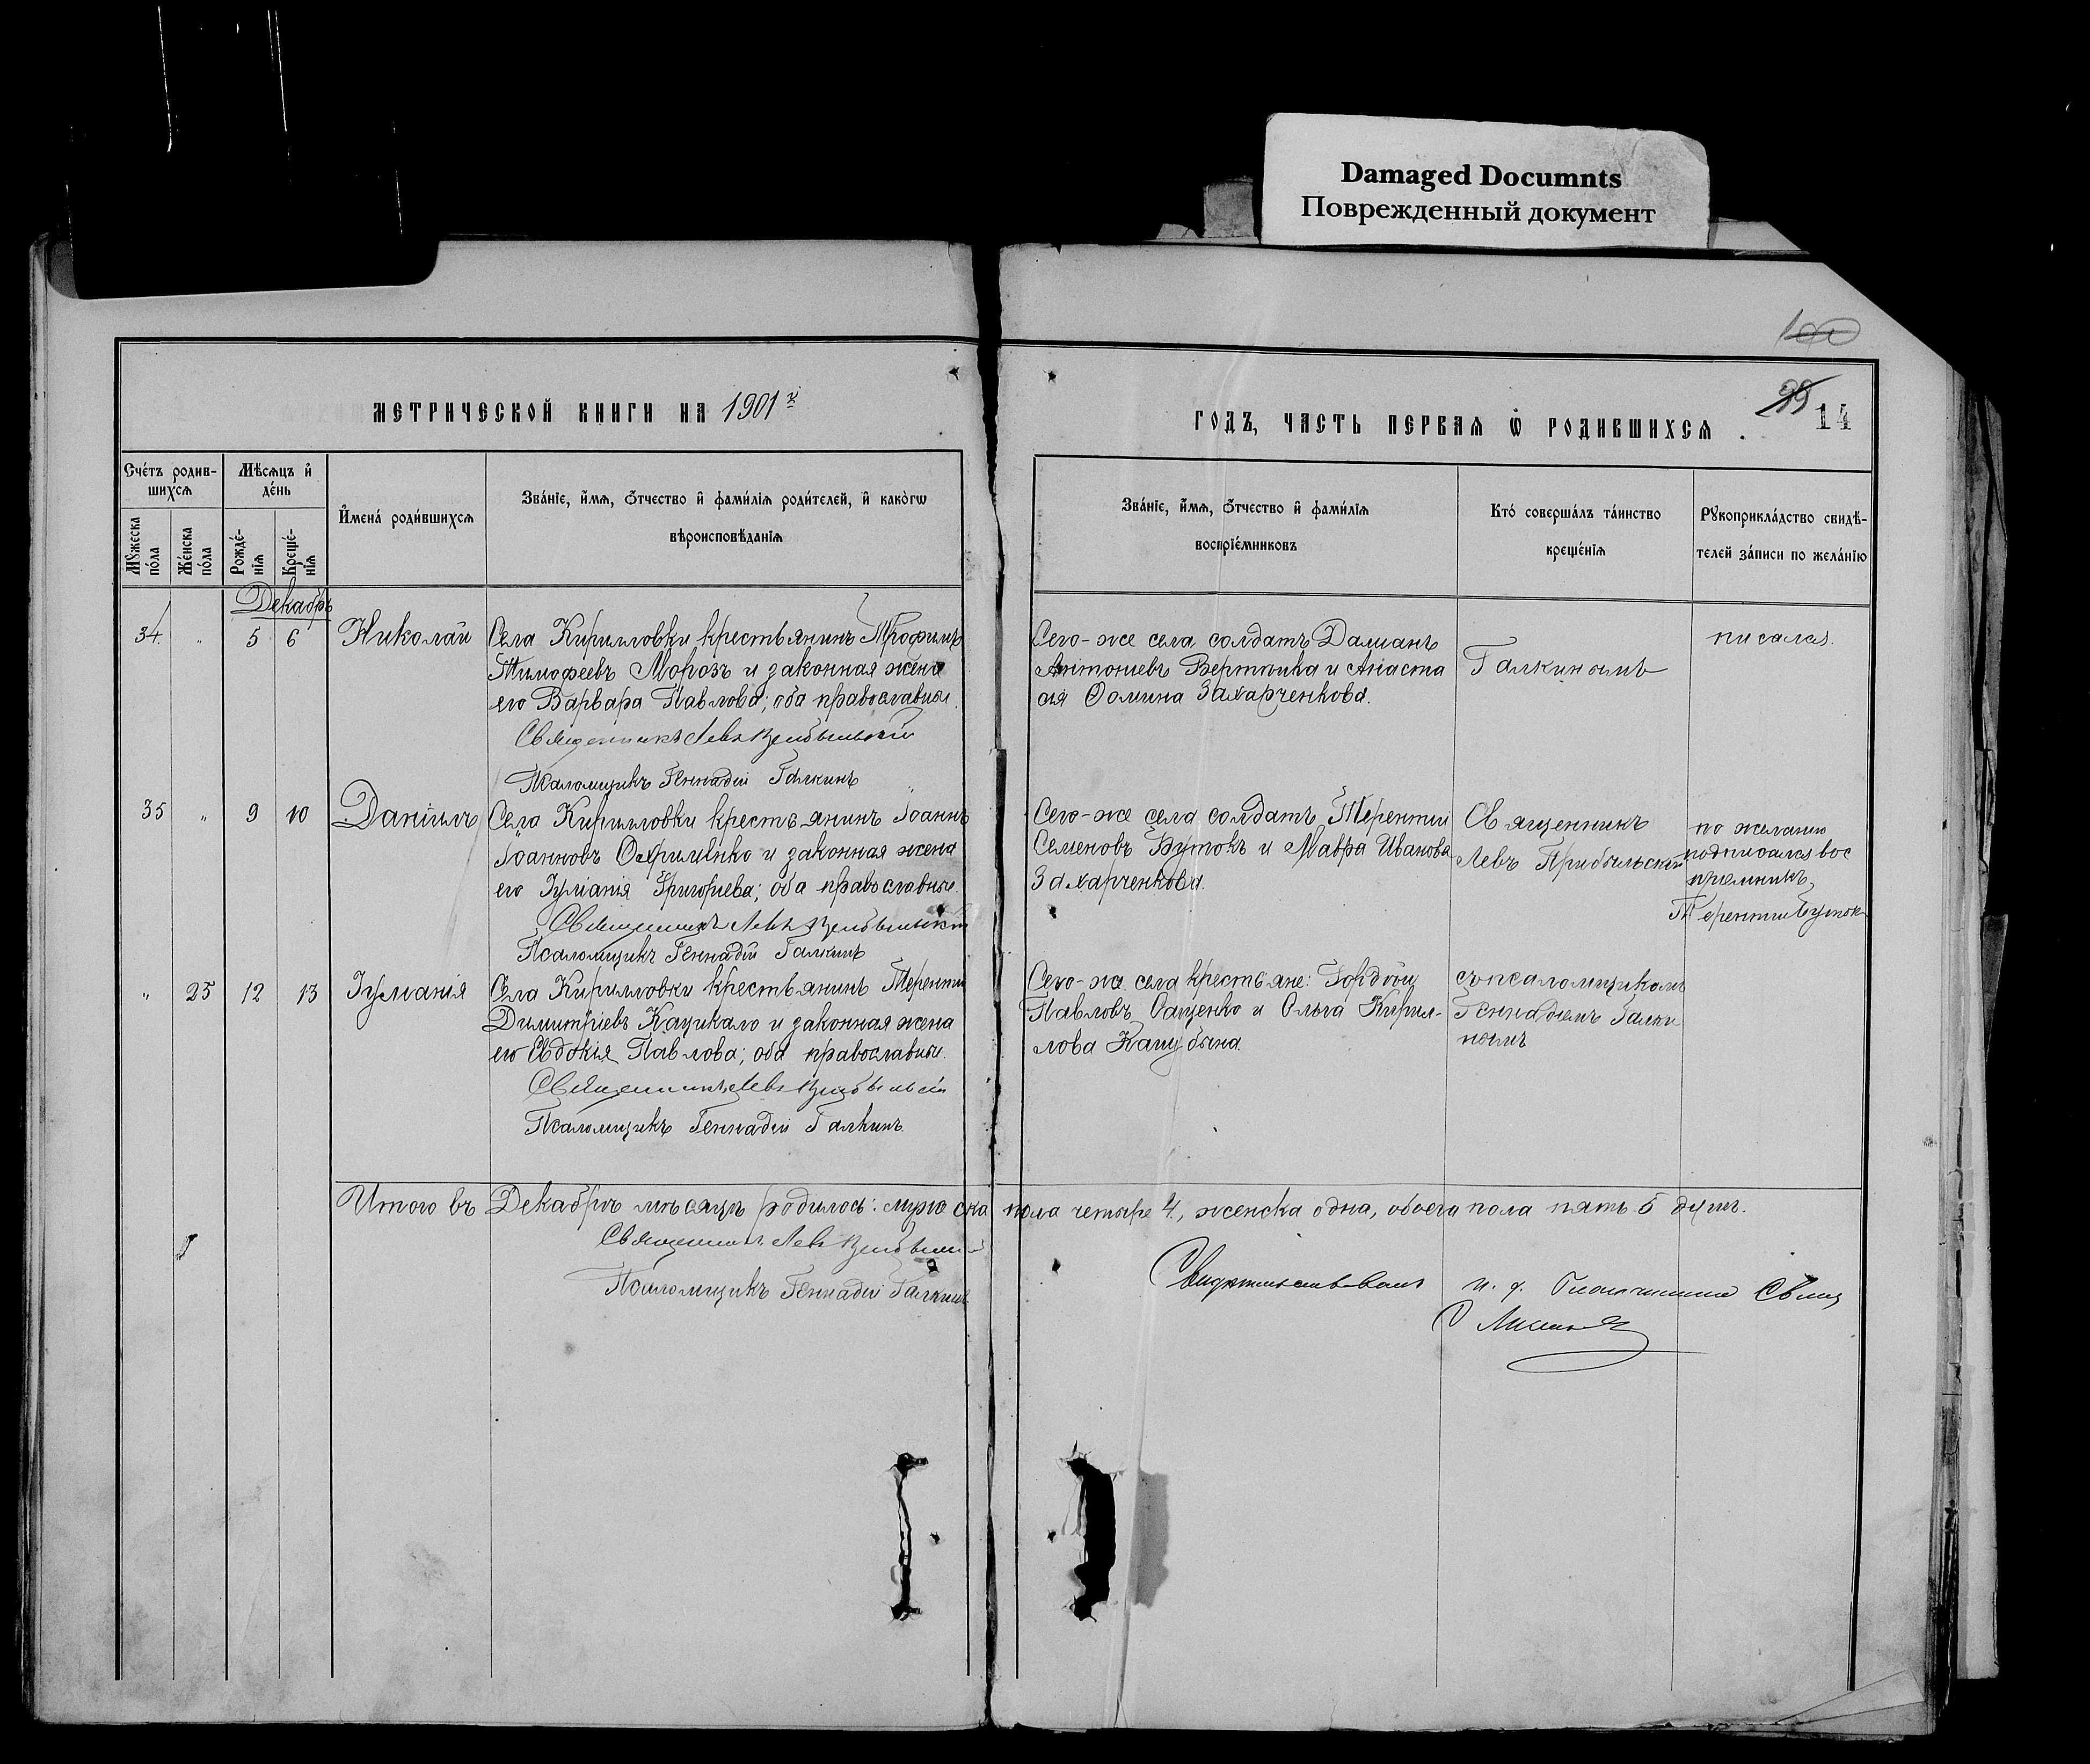 Damaged Documnts
Поврежденный документ
100
99 14
МЕТРИЧЕСКОЙ КНИГИ НА 1901й
ГОДЪ, ЧАСТЬ ПЕРВАЯ Ѡ РОДИВШИХСЯ.
Счетъ родив-
шихся
Мѣсяцъ и
день
Мужеска
пола
Женска
пола
Рожде-
нія
Креще-
нія
Имена родившихся
Званіе, имя, отчество и фамилія родителей, и какогѡ
вѣроисповѣданія
Званіе, имя, отчество и фамилія
воспріемниковъ
Кто совершалъ таинство
крещенія
Рукоприкладство свидѣ-
телей записи по желанію
Декабрь
34 " 5 6 Николай
Села Кирилловки крестьянинъ Трофимъ
Тимофеевъ Морозъ и законная жена
его Варвара Павлова; оба православные.
Священникъ Левъ
Псаломщикъ Геннадій Галкинъ
Сего-же села солдатъ Даміанъ
Антоніевъ Вертыика и Анаста
сія Фомина Захарченкова.
Галкинымъ
писался.
35 " 9 10 Даніилъ
Села Кирилловки крестьянинъ Іоаннъ
Іоанновъ Охрименко и законная жена
его Іуліанія Григориева; оба православные.
Священникъ Левъ
Псаломщикъ Геннадій Галкинъ
Сего-же села солдатъ Терентій
Семеновъ Бутокъ и Мавра Иванова
Захарченкова.
Священникъ
Левъ Прибыльскій
по желанію
подписался вос
пріемникъ
Терентій Бутокъ
" 25 12 13 Іуліанія
Села Кирилловки крестьянинъ Терентій
Димитріевъ Кацикало и законная жена
его Евдокія Павлова; оба православные.
Священникъ Левъ
Псаломщикъ Геннадій Галкинъ.
Сего-же села крестьяне: Гордѣй
Павловъ Ощенко и Ольга Кирил-
лова
съ псаломщикомъ
Геннадіемъ Галки
нымъ
Итого въ Декабрѣ мѣсяцѣ родилось: мужеска пола четыре 4, женска одна, обоего пола пять 5 душъ.
Священникъ Левъ
Псаломщикъ Геннадій Галкинъ
Свидѣтельствовалъ и. д. Свящ